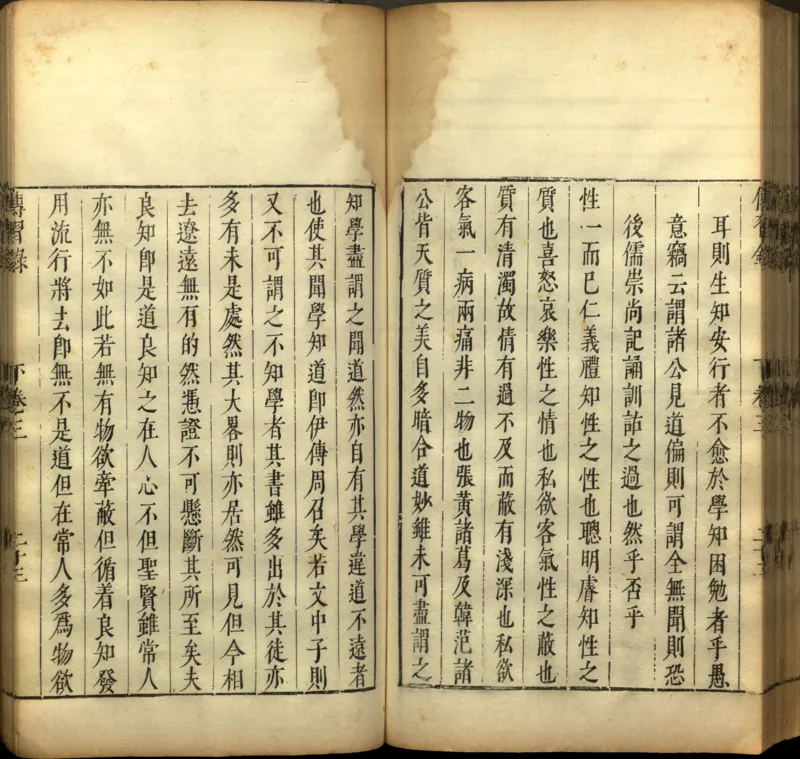 耳則生知安行者不愈於學知困勉者乎愚
意竊云謂諸公見道偏則可謂全無聞則恐
後儒崇尚記誦訓詁之過也然乎否乎
性一而已仁義禮知性之性也聰明睿知性之
質也喜怒哀樂性之情也私欲客氣性之蔽也
質有清濁故情有過不及而蔽有淺深也私欲
客氣一病兩痛非二物也張黃諸葛及韓范諸
公皆天質之美自多暗合道妙雖未可盡謂之
知學盡謂之聞道然亦自有其學違道不遠者
也使其聞學知道卽伊傅周召矣若文中子則
又不可謂之不知學者其書雖多出於其徒亦
多有未是處然其大畧則亦居然可見但今相
去遼遠無有的然憑證不可懸斷其所至矣夫
良知卽是道良知之在人心不但聖賢雖常人
亦無不如此若無有物欲牽蔽但循着良知發
用流行將去卽無不是道但在常人多爲物欲
傳習錄 下卷三